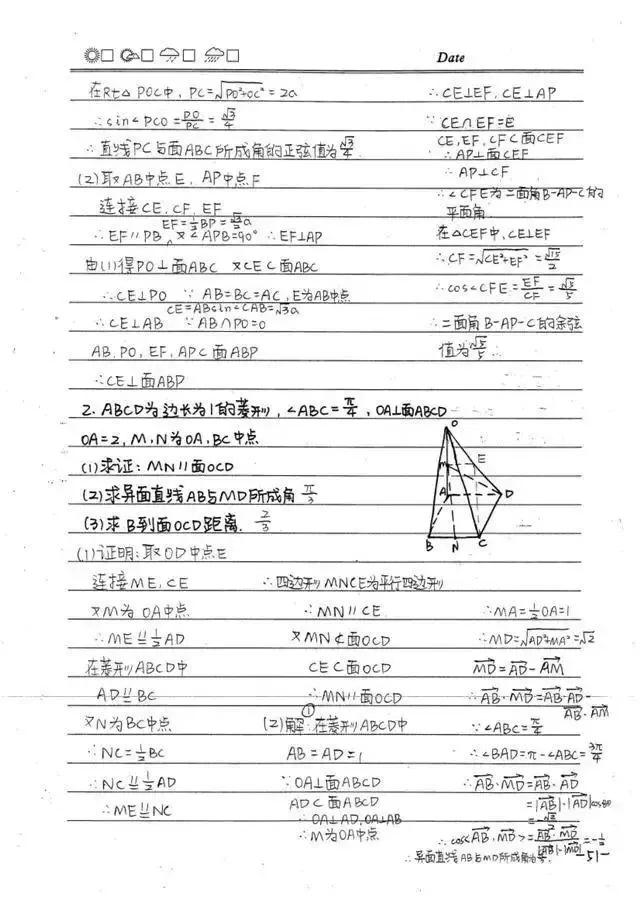 Date
在Rt△POC中, PC=√PO²+OC² = 2a
∴sin∠PCO=PO/PC=√3/4
∴直线PC与面ABC所成角的正弦值为√3/4.
(2)取AB中点E, AP中点F
连接CE, CF, EF
EF=½BP=√2/2a
∴EF∥PB 又∠APB=90° ∴EF⊥AP
由(1)得PO⊥面ABC 又CE⊂面ABC
∴CE⊥PO ∵AB=BC=AC, E为AB中点
CE=ABsin∠CAB=√3a
∴CE⊥AB ∵AB∩PO=O
AB, PO, EF, AP⊂面ABP
∴CE⊥面ABP
∴CE⊥EF, CE⊥AP
∵CE∩EF=E
CE, EF, CF⊂面CEF
∴AP⊥面CEF
∴AP⊥CF
∴∠CFE为二面角B-AP-C的
平面角.
在△CEF中, CE⊥EF
∴CF=√CE²+EF²=
∴cos∠CFE=EF/CF=√5/5
∴二面角B-AP-C的余弦
值为√5/5.
2. ABCD为边长为1的菱形, ∠ABC=π/4, OA⊥面ABCD
OA=2, M, N为OA, BC中点
(1)求证: MN∥面OCD
(2)求异面直线AB与MD所成角 π/3
(3)求B到面OCD距离. 2/3
O
M
E
A
D
B
N
C
(1)证明: 取OD中点E
连接ME, CE
又M为OA中点
∴ME∥=½AD
在菱形ABCD中
AD∥=BC
又N为BC中点
∴NC=½BC
∴NC∥=½AD
∴ME∥=NC
∴四边形MNCE为平行四边形
∴MN∥CE
又MN⊄面OCD
CE⊂面OCD
∴MN∥面OCD
①
(2)解: 在菱形ABCD中
AB=AD=1
∵OA⊥面ABCD
AD⊂面ABCD
∴OA⊥AD, OA⊥AB
∴M为OA中点
∴MA=½OA=1
∴MD=√AD²+MA²=√2
MD=AD-AM
∴AB·MD=AB·AD-
AB·AM
∵∠ABC=π/4
∴∠BAD=π-∠ABC=3π/4
∴AB·MD=AB·AD
=|AB|·|AD|cos
=-√2/2
∴cos<AB, MD>=AB·MD/|AB|·|MD|=-½
∴异面直线AB与MD所成角为π/3.
-51-